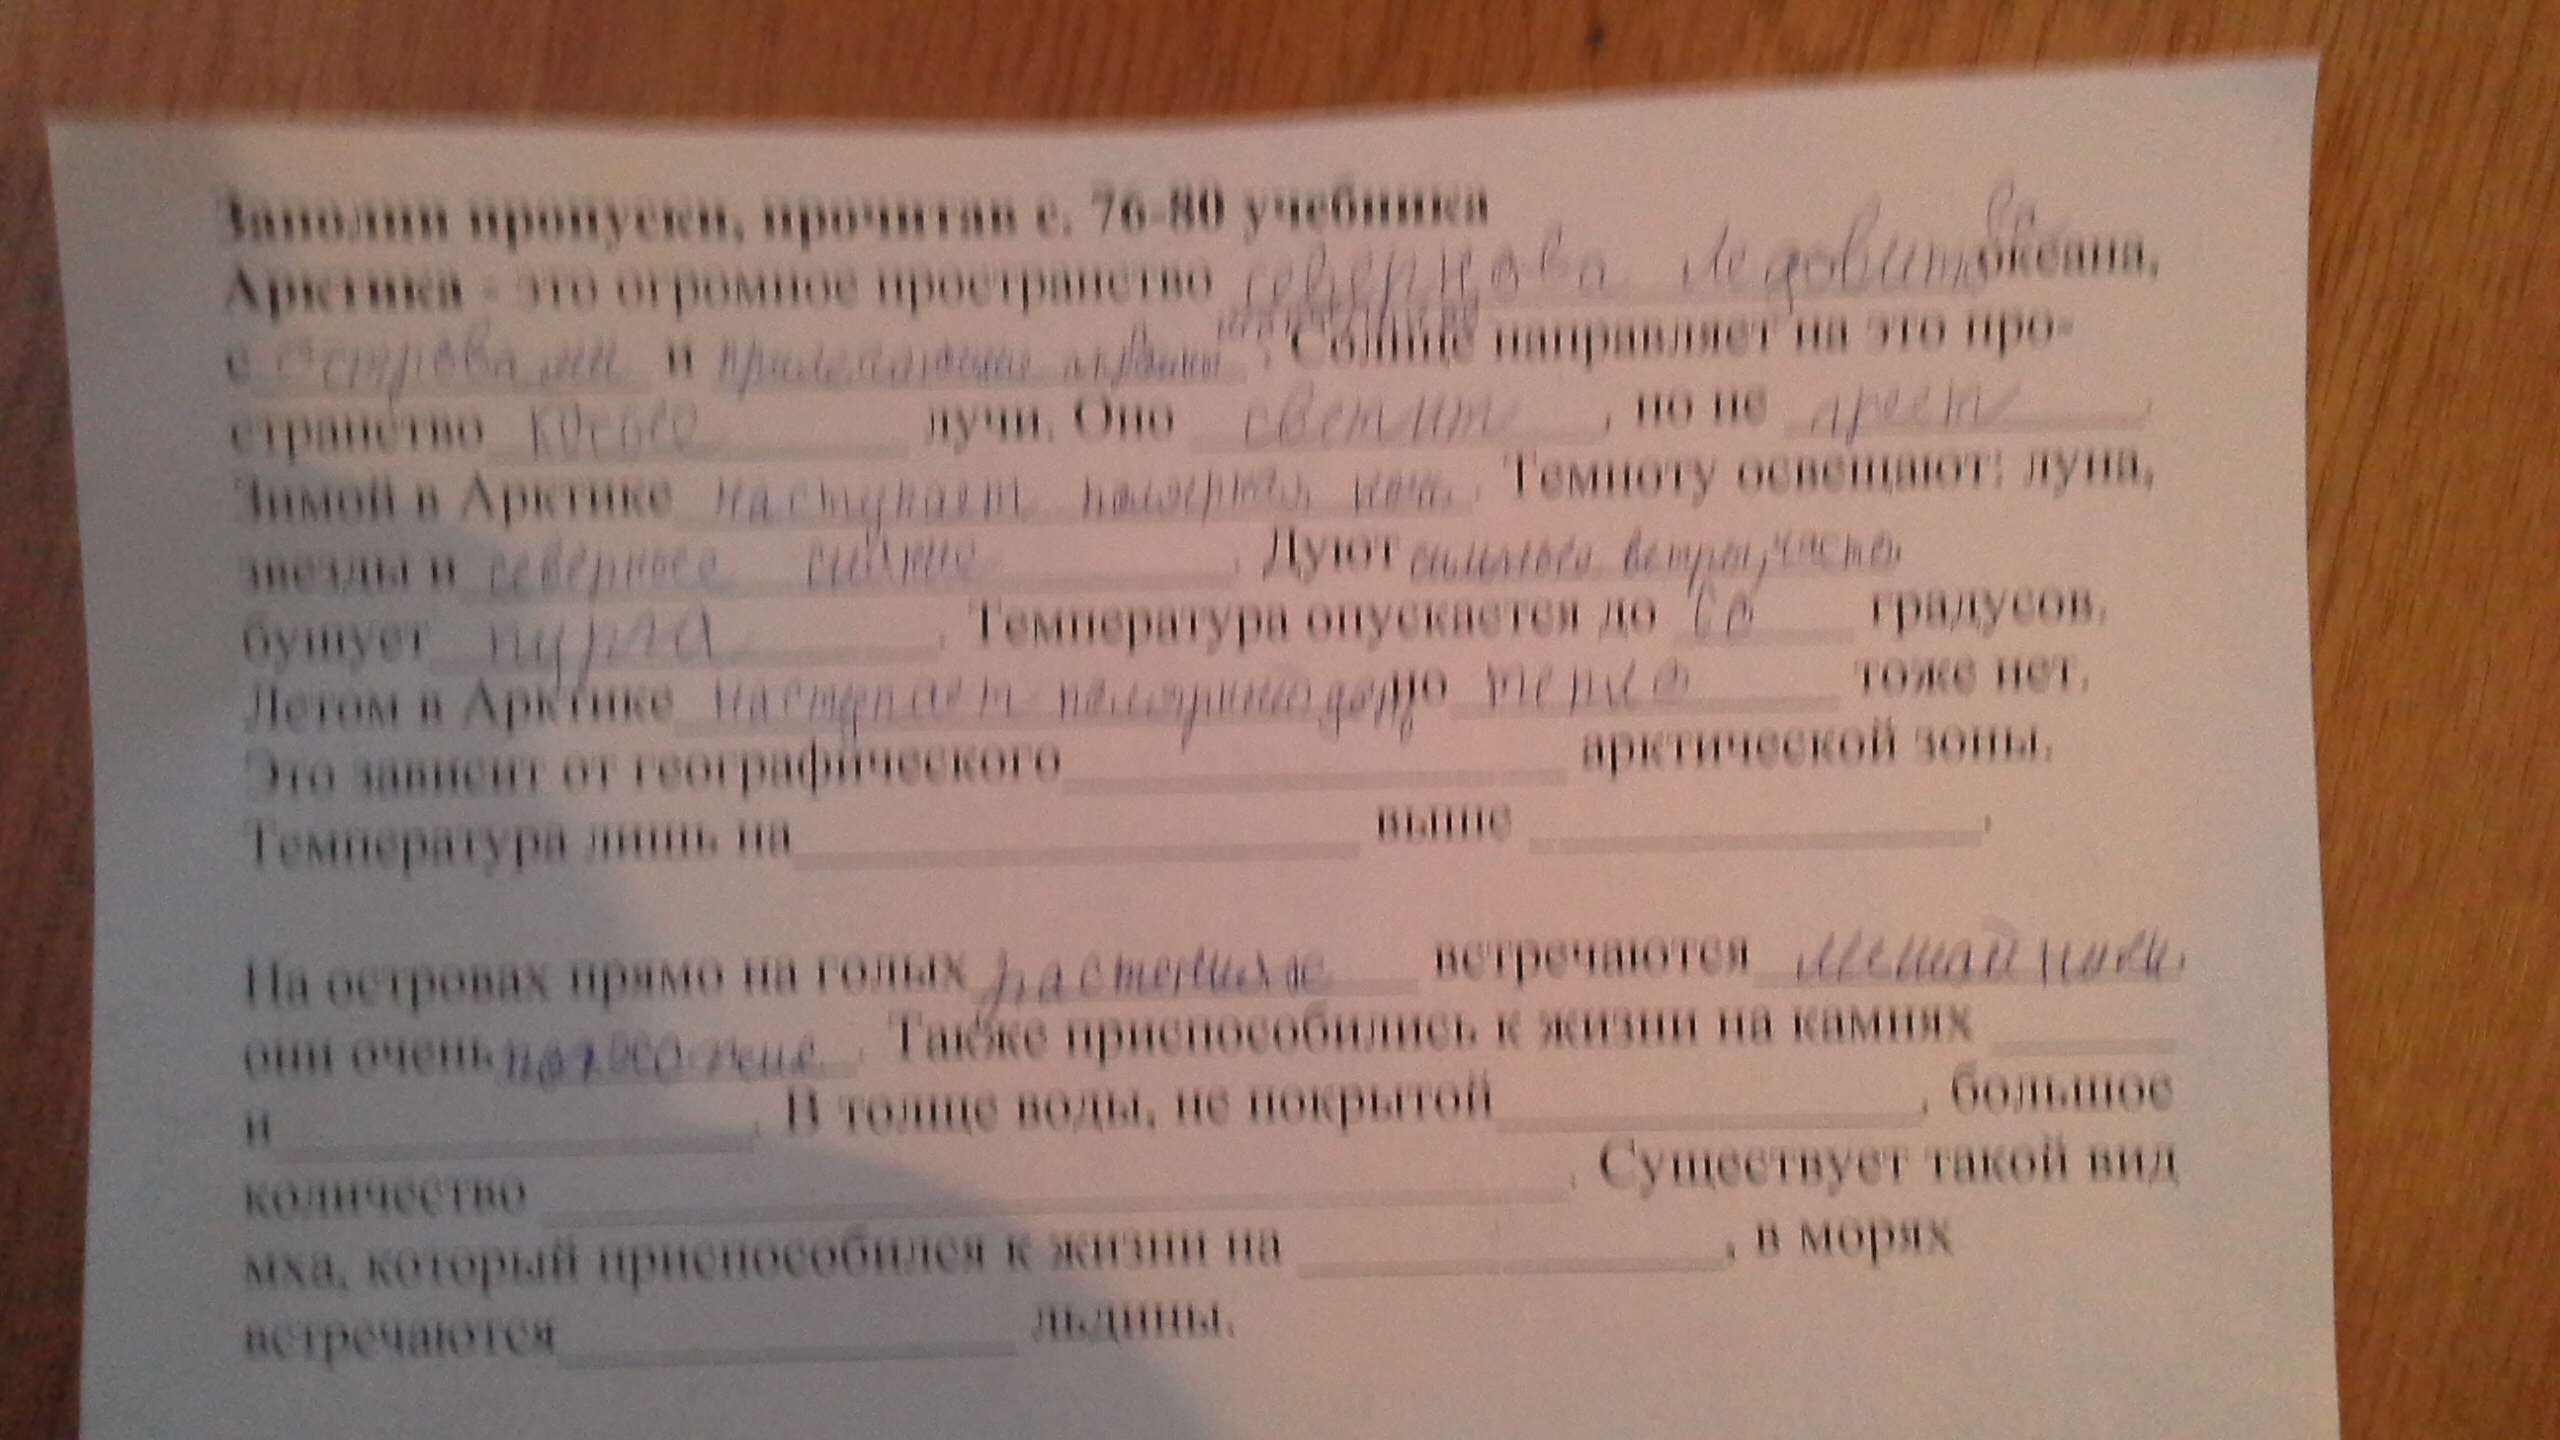 Заполни пропуски, прочитав с. 76-80 учебника
Арктика - это огромное пространство севернова Ледовитова океана,
с островами и . Солнце направляет на это про-
странство косые лучи. Оно светит, но не греет
Зимой в Арктике наступает полярная ночь. Темноту освещают: луна,
звезды и северные сияние. Дуют сильные ветры, часто
бушует пурга. Температура опускается до 60 градусов.
Летом в Арктике наступает но тепло тоже нет.
Это зависит от географического арктической зоны.
Температура лишь на выше .
На островах прямо на голых растениях встречаются
они очень . Также приспособились к жизни на камнях
и . В толще воды, не покрытой , большое
количество . Существует такой вид
мха, который приспособился к жизни на , в морях
встречаются льдины.